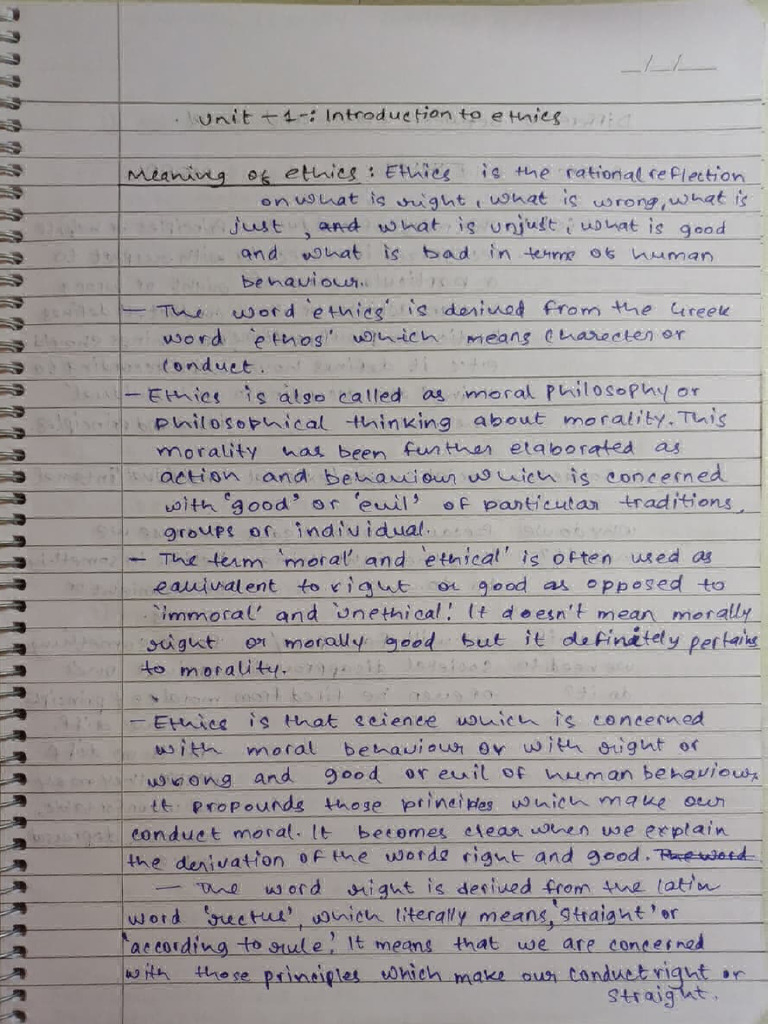 __/__/____
Unit - 1 -: Introduction to ethics
Meaning of ethics : Ethics is the rational reflection
on what is right, what is wrong, what is
just, and what is unjust, what is good
and what is bad in terms of human
behaviour.
– The word 'ethics' is derived from the Greek
word 'ethos' which means Charecter or
conduct.
– Ethics is also called as moral philosophy or
philosophical thinking about morality. This
morality has been further elaborated as
action and behaviour which is concerned
with 'good' or 'evil' of particular traditions,
groups or individual.
– The term 'moral' and 'ethical' is often used as
equivalent to right or good as opposed to
'immoral' and 'unethical'. It doesn't mean morally
right or morally good but it definetely pertains
to morality.
– Ethics is that science which is concerned
with moral behaviour or with right or
wrong and good or evil of human behaviour.
It propounds those principles which make our
conduct moral. It becomes clear when we explain
the derivation of the words right and good. The word
– The word right is derived from the latin
word 'rectus', which literally means, 'straight' or
'according to rule'. It means that we are concerned
with those principles which make our conduct right or
straight.